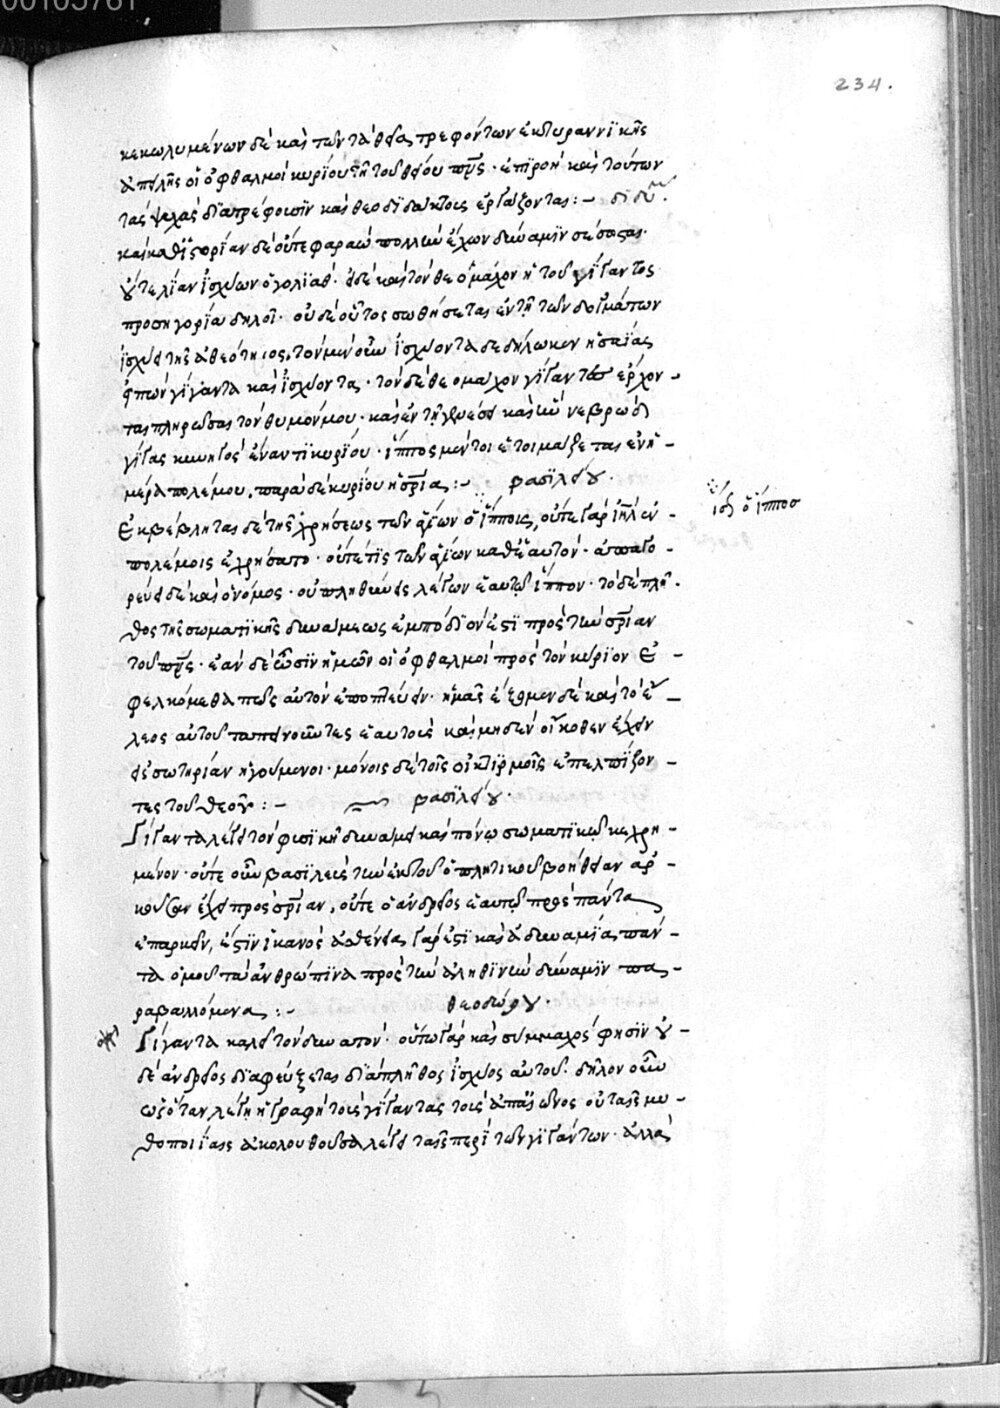 234.
κεκωλυμένων δὲ καὶ τῶν τὰ θεῖα τρεφόντων ἐκ τυραννικῆς
ἀπειλῆς οἱ ὀφθαλμοὶ κυρίου ἢ τοῦ θεοῦ π̅ρ̅ς̅· ἐπὶ ῥοπῇ καὶ τούτων
τὰς ψυχὰς διατρέφουσιν καὶ θεοδιδάκτους ἐργάζονται :– διδύ.
καὶ καθ' ἱστορίαν δὲ οὔτε φαραὼ πολλὴν ἔχων δύναμιν σέσωσται·
ἰσχύων ὁ γολιάθ· εἰ δὲ καὶ τὸν θεομάχον ἡ τοῦ γίγαντος
προσηγορία δηλοῖ· οὐδὲ οὗτος σωθήσεται ἐν τῇ τῶν δογμάτων
ἰσχύϊ τῆς ἀθεότητος. τὸν μὲν οὖν ἰσχύοντα δεδήλωκεν ἡσαΐας
εἰπὼν γίγαντα καὶ ἰσχύοντας· τὸν δὲ θεομάχον γίγαντες ἔρχον–
ται πληρῶσαι τὸν θυμόν μου· καὶ ἐν τῇ γενέσει καὶ νεβρὼδ
γίγας κυνηγὸς ἐναντι κυρίου· ἵππος μέντοι ἑτοιμάζεται εἰς ἡ–
μέραν πολέμου, παρὰ δὲ κυρίου ἡ σ̅ρ̅ία :– βασιλείου.
ἰδ ὁ ἵππος
Ἐκβέβληται δὲ τῆς χρήσεως τῶν ἁγίων ὁ ἵππος, οὔτε γὰρ ἰ̅η̅λ̅ ἐν
πολέμοις ἐχρήσατο· οὔτέ τις τῶν ἁγίων καθ' ἑαυτόν· ἀπαγο–
ρεύει δὲ καὶ ὁ νόμος· οὐ πληθυνεῖς λέγων ἑαυτῷ ἵππον· τὸ δὲ πλῆ–
θος τῆς σωματικῆς δυνάμεως ἐμπόδιόν ἐστι πρὸς τὴν σ̅ρ̅ίαν
τοῦ π̅ρ̅ς̅· ἐὰν δὲ ὦσιν ἡμῶν οἱ ὀφθαλμοὶ πρὸς τὸν κύριον ἐ–
φελκόμεθά πως αὐτὸν ἐποπτεύειν· ἡμᾶς ἕξομεν δὲ καὶ τὸ ἔ–
λεος αὐτοῦ ταπεινοῦντες ἑαυτοὺς καὶ μηδὲν οἴκοθεν ἔχειν
εἰς σωτηρίαν ἡγούμενοι· μόνοις δὲ τοῖς οἰκτιρμοῖς ἐπελπίζον–
τες τοῦ θεοῦ :– βασιλείου.
Γίγαντα λέγει τὸν φυσικῇ δυνάμει καὶ πόνῳ σωματικῷ κεχρη–
μένον· οὔτε οὖν βασιλεὺς τὴν ἐκ τοῦ ὁπλιτικοῦ βοήθειαν ἀρ–
κοῦσαν ἔχει πρὸς σ̅ρ̅ίαν, οὔτε ὁ ἀνδρεῖος ἑαυτῷ πρὸς πάντα
ἐπαρκεῖν, ἐστὶν ἱκανὸς ἀσθένεια γάρ ἐστι καὶ ἀδυναμία πάν–
τα ὁμοῦ τὰ ἀνθρώπινα πρὸς τὴν ἀληθινὴν δύναμιν πα–
ραβαλλόμενα :– θεοδώρου.
Γίγαντα καλεῖ τὸν δυνατόν· οὕτω γὰρ καὶ σύμμαχος φησὶν οὐ–
δὲ ἀνδρεῖος διαφεύξεται διὰ πλῆθος ἰσχύος αὐτοῦ· δῆλον οὖν
ὡς ὅταν λέγῃ ἡ γραφὴ τοὺς γίγαντας τοὺς ἀπ' αἰῶνος οὐ ταῖς μυ–
θοποιΐαις ἀκολουθοῦσα λέγει ταῖς περὶ τῶν γιγάντων· ἀλλὰ